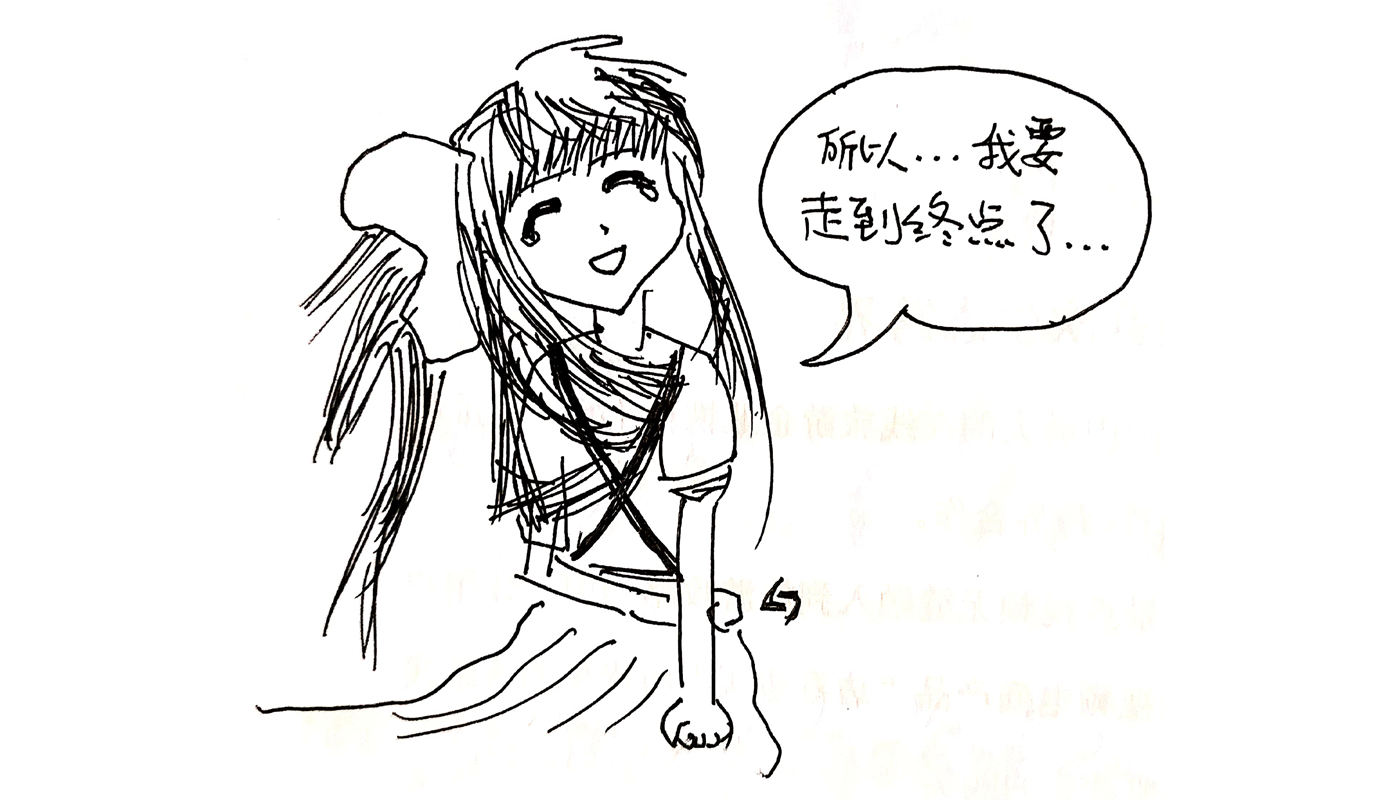 所以...我要
走到终点了...